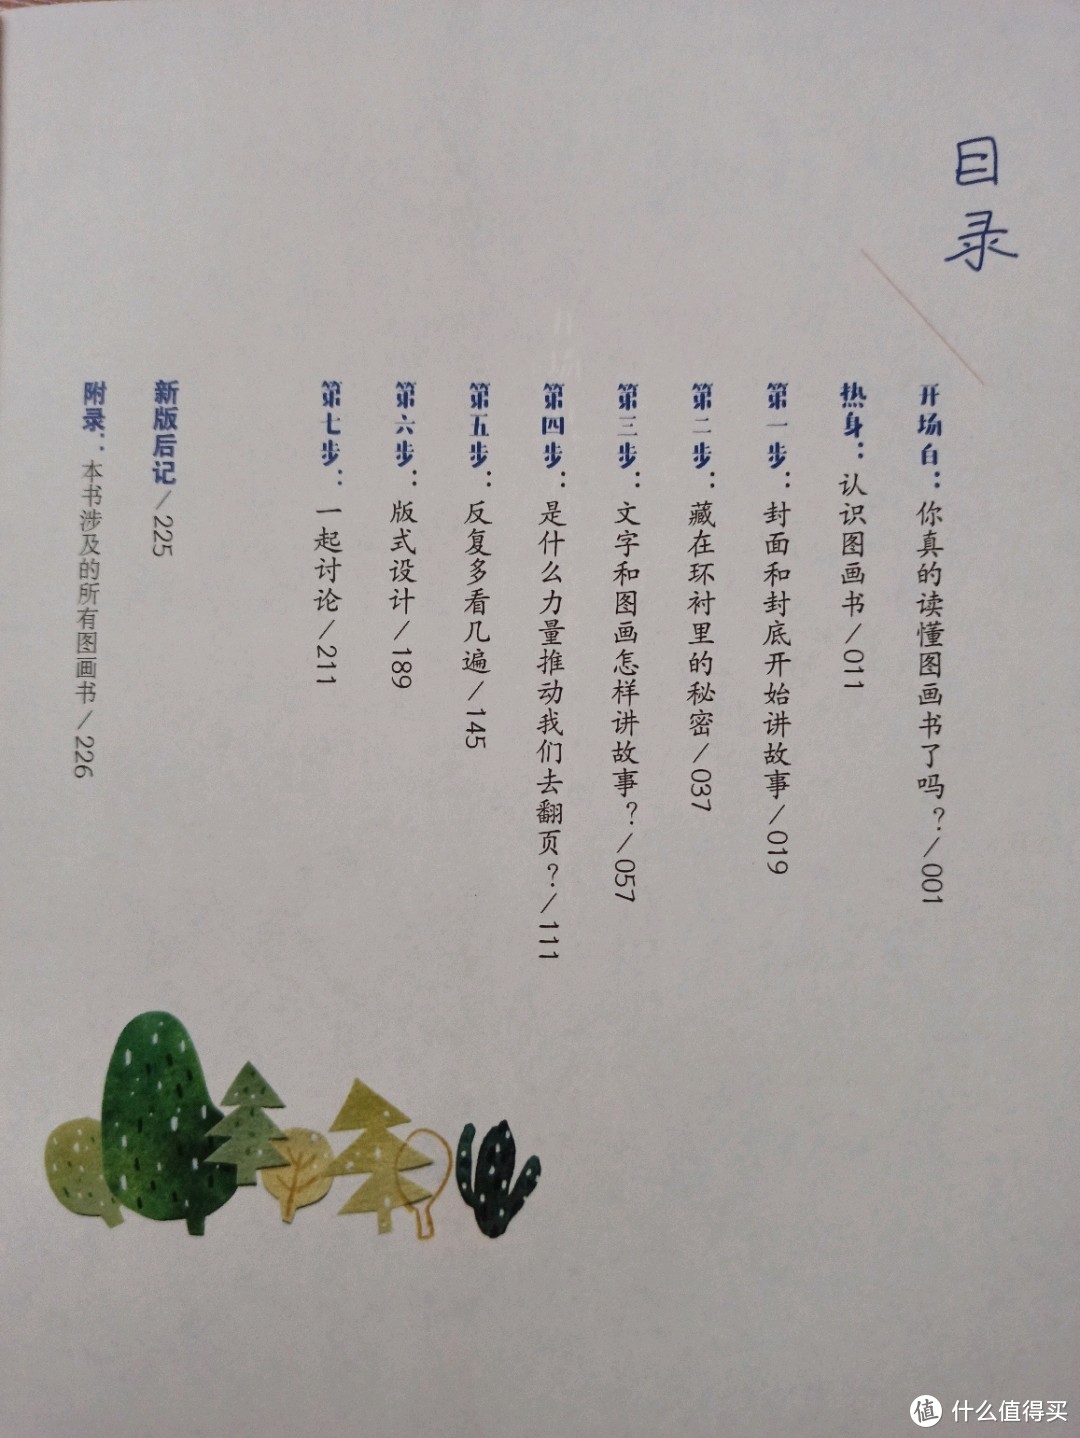 目录
开场白：你真的读懂图画书了吗？/001
热身：认识图画书/011
第一步：封面和封底开始讲故事/019
第二步：藏在环衬里的秘密/037
第三步：文字和图画怎样讲故事？/057
第四步：是什么力量推动我们去翻页？/111
第五步：反复多看几遍/145
第六步：版式设计/189
第七步：一起讨论/211
新版后记/225
附录：本书涉及的所有图画书/226
值 什么值得买